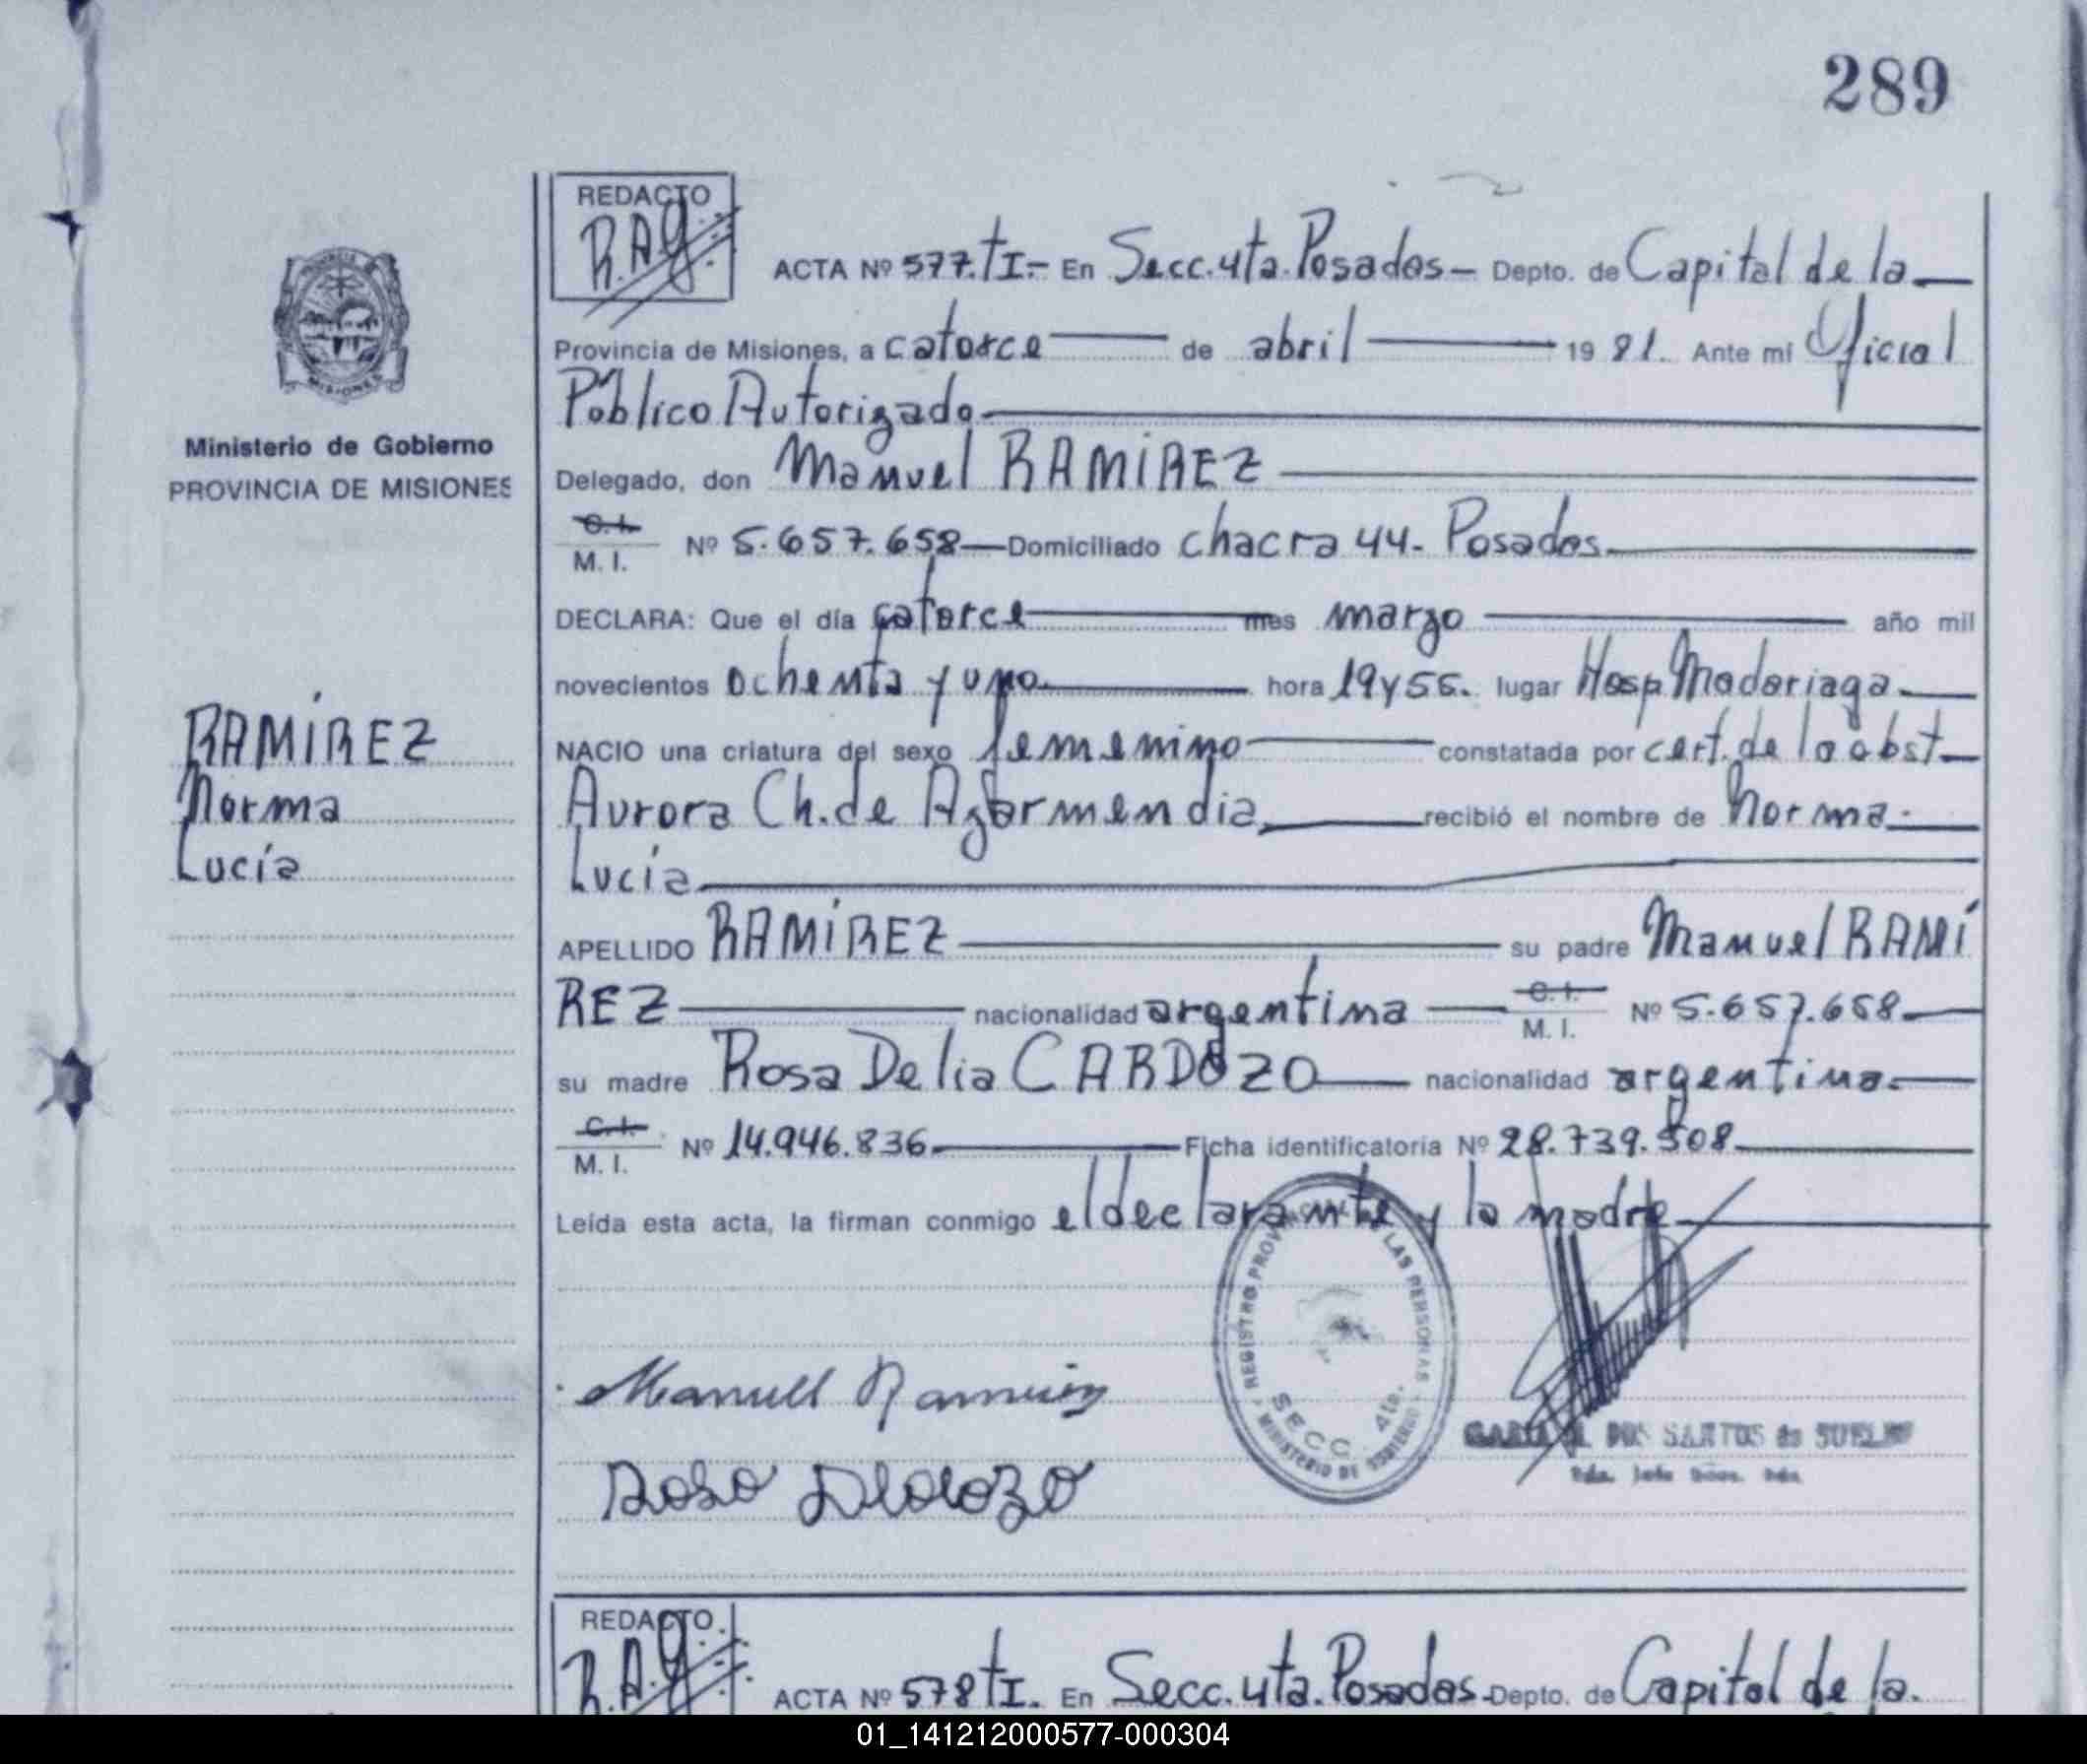 289
REDACTO
R.A.G.
ACTA Nº 577.tI.- En Secc.4ta.Posadas- Depto. de Capital de la
Provincia de Misiones, a catorce de abril 1981. Ante mi Oficial
Público Autorizado
Delegado, don Manuel RAMÍREZ
C.I.
M. I. Nº 5.657.658 Domiciliado chacra 44- Posadas.
DECLARA: Que el día catorce mes marzo año mil
novecientos ochenta y uno. hora 19y55. lugar Hosp.Madariaga.
NACIO una criatura del sexo femenino constatada por cert.de la obst
Aurora Ch.de Azarmendia, recibió el nombre de Norma
Lucía
APELLIDO RAMÍREZ su padre Manuel RAMÍ
REZ nacionalidad argentina C.I.
M. I. Nº 5.657.658
su madre Rosa Delia CARDOZO nacionalidad argentina.
C.I.
M. I. Nº 14.946.836 Ficha identificatoria Nº 28.739.508
Leída esta acta, la firman conmigo el declarante y la madre
Manuel Ramirez
Rosa
REGISTRO PROVINCIAL DE LAS PERSONAS
SECC. 4ta.
MINISTERIO DE GOBIERNO
DOS SANTOS de
Ministerio de Gobierno
PROVINCIA DE MISIONES
RAMÍREZ
Norma
Lucía
REDACTO.
R.A.G.
ACTA Nº 578tI. En Secc.4ta.Posadas.Depto. de Capital de la.
01_141212000577-000304